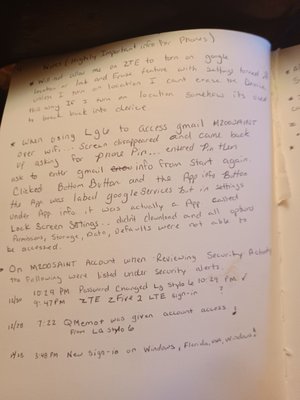 Notes (Highly Important info for Phones)
* Will not allow me on ZTE to turn on google
location or Lock and Erase feature with settings turned
unless I turn on location I cant erase the Device
this way If I turn on location somehow its used
to break back into device
* When Using Lgle to access gmail MZOOSAINT
over wifi... Screen disappeared and came back
up asking for Phone Pin... entered Pin then
ask to enter gmail info from Start again.
Clicked Bottom Button and the App info Button
the App was labeled google Services But in settings
under App info it was actually a App called
Lock Screen Settings... didnt download and all options
Permissions, Storage, Data, Defaults were not able to
be accessed.
* On MZOOSAINT Account when Reviewing Security Activity
the Following were listed under security alerts.
12/30 10:29 PM Password Changed by Stylo 6 10:29 PM
9:47 PM ZTE ZFive 2 LTE Sign-in ?
12/28 7:22 QMemo+ was given account access!
From LG Stylo 6
3:48 PM New Sign-in on Windows, Florida, USA, Windows!